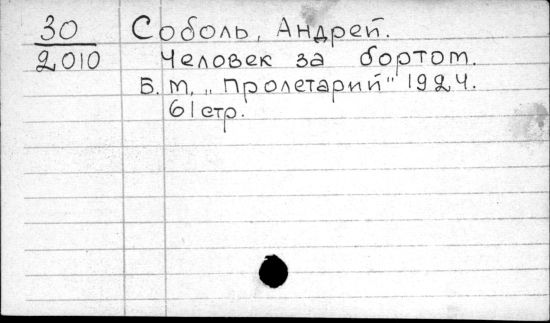 30 Соболь, Андрей.
2010 Человек за бортом.
Б. м, „Пролетарий" 1924.
61 стр.